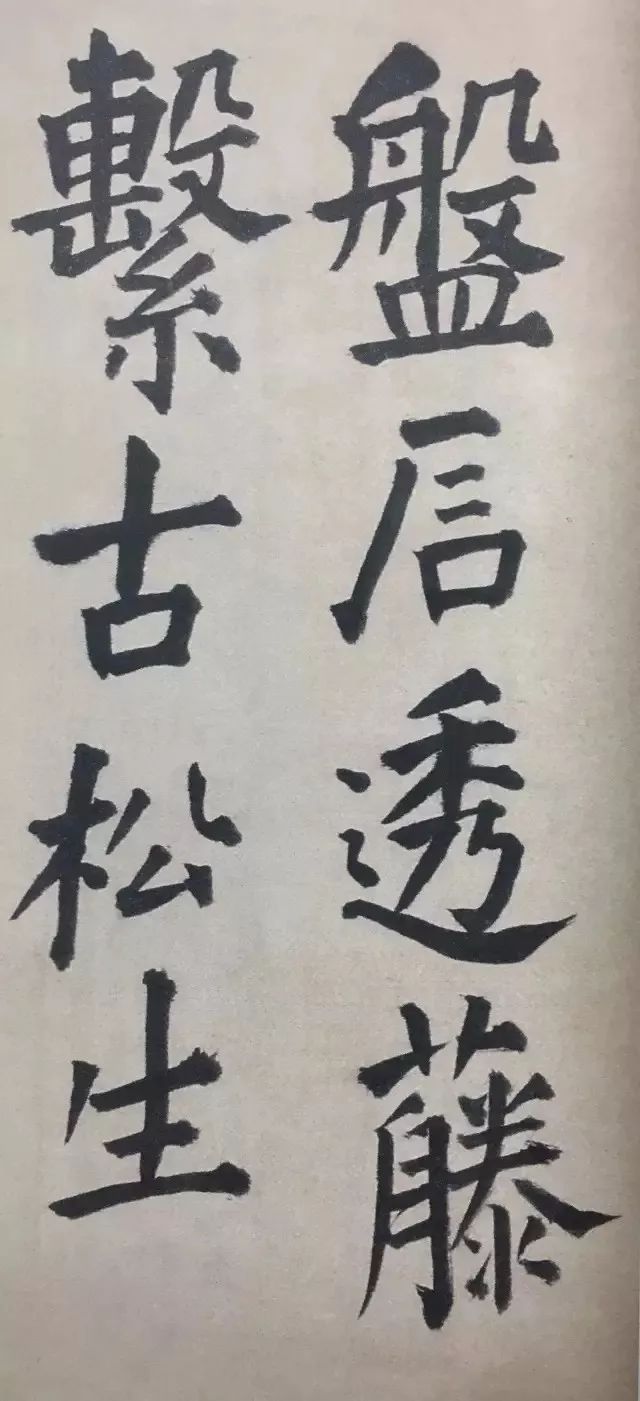 盤透藤
繫古松生